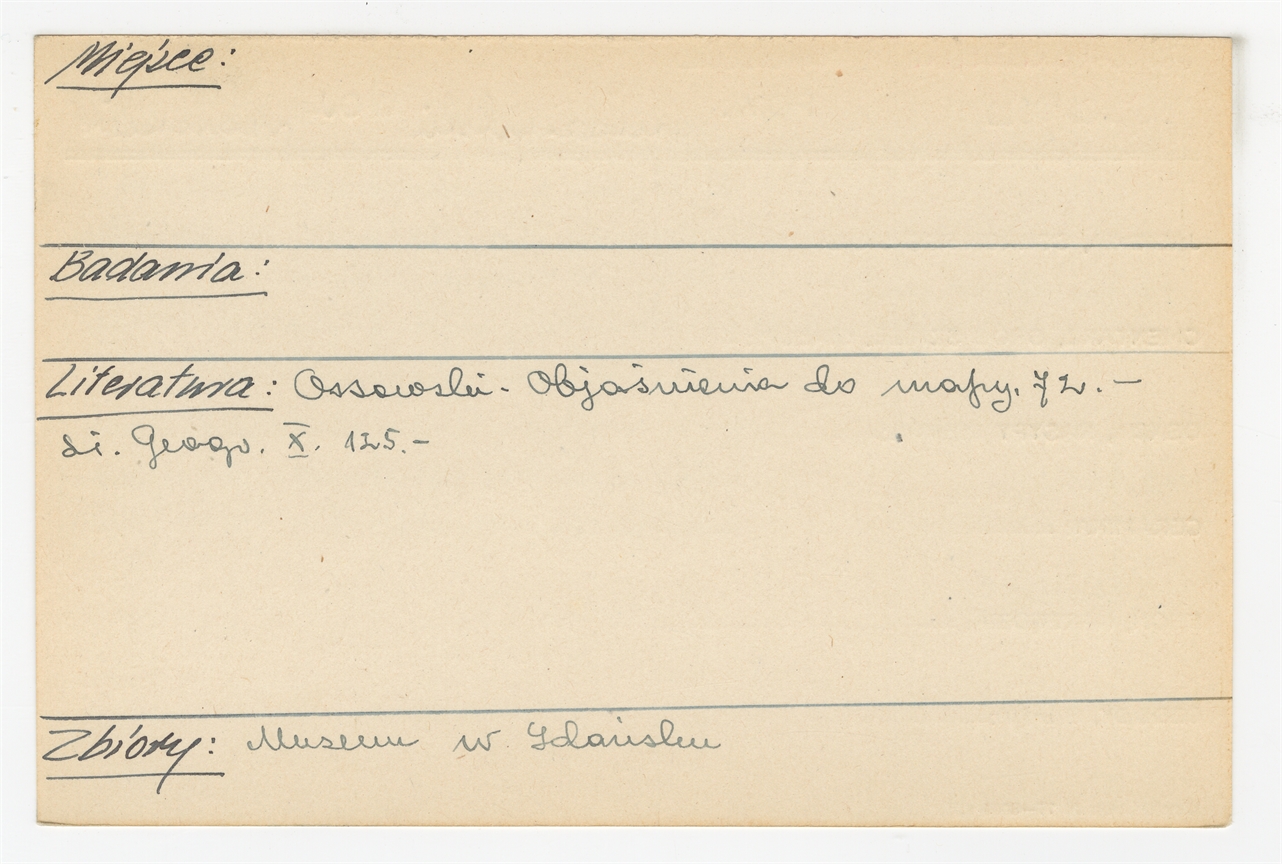 Miejsce:
Badania:
Literatura: Ossowski - Objaśnienia do mapy. 72. -
Sł. Geogr. X. 125. -
Zbiory: Museum w Gdańsku